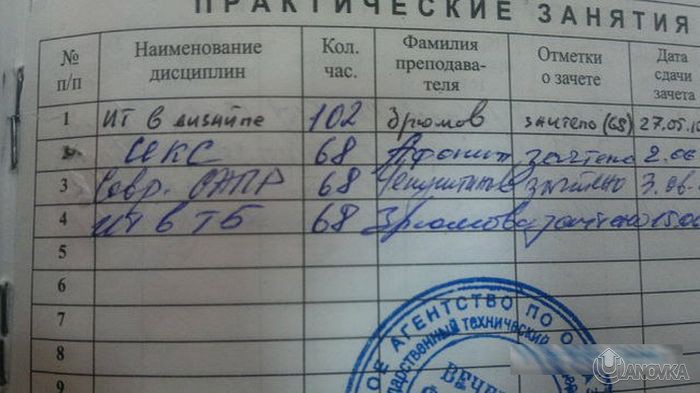 ПРАКТИЧЕСКИЕ ЗАНЯТИЯ
№ п/п Наименование дисциплин Кол. час. Фамилия преподава-теля Отметки о зачете Дата сдачи зачета
1 ИТ в дизайне 102 Зрюмов зачтено (68) 27.05.10
СЕКС 68 Афонин зачтено 2.06
3 Совр. САПР 68 зачтено 3.06.
4 ИТ в ТБ 68 Зрюмова зачтено 15.06
5
6
7
8
9
ОЕ АГЕНТСТВО ПО О
дарственный технический
ВЕЧЕ
ULANOVKA